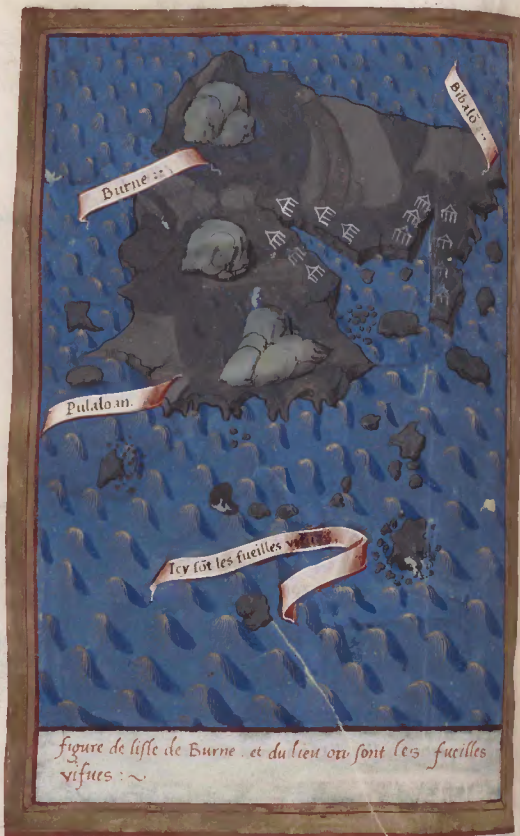 Bibalõ ::
Burne ::
Pulaloan.
Icy sõt les fueilles vifues
figure de lisle de Burne . et du lieu ou sont les fueilles
vifues : ~